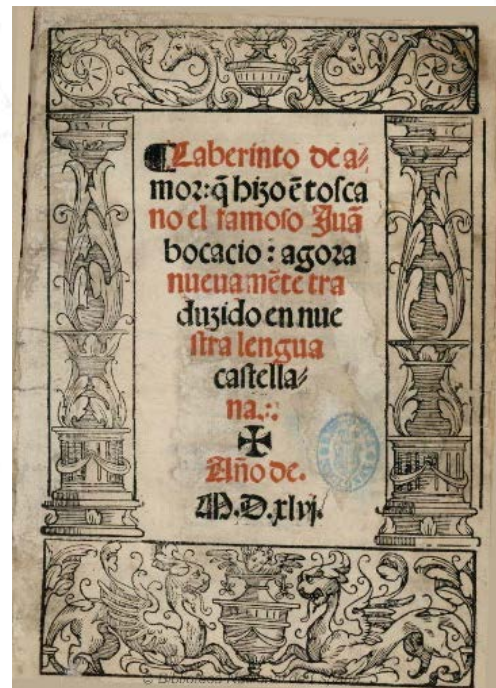 ¶ Laberinto de a⸗
mor: q̃ hizo ẽ tosca
no el famoso Juã
bocacio: agora
nueuamẽte tra
duzido en nue
stra lengua
castella⸗
na.:.
✠
Año de.
M.D.xlvj.
© Biblioteca Nacional de España